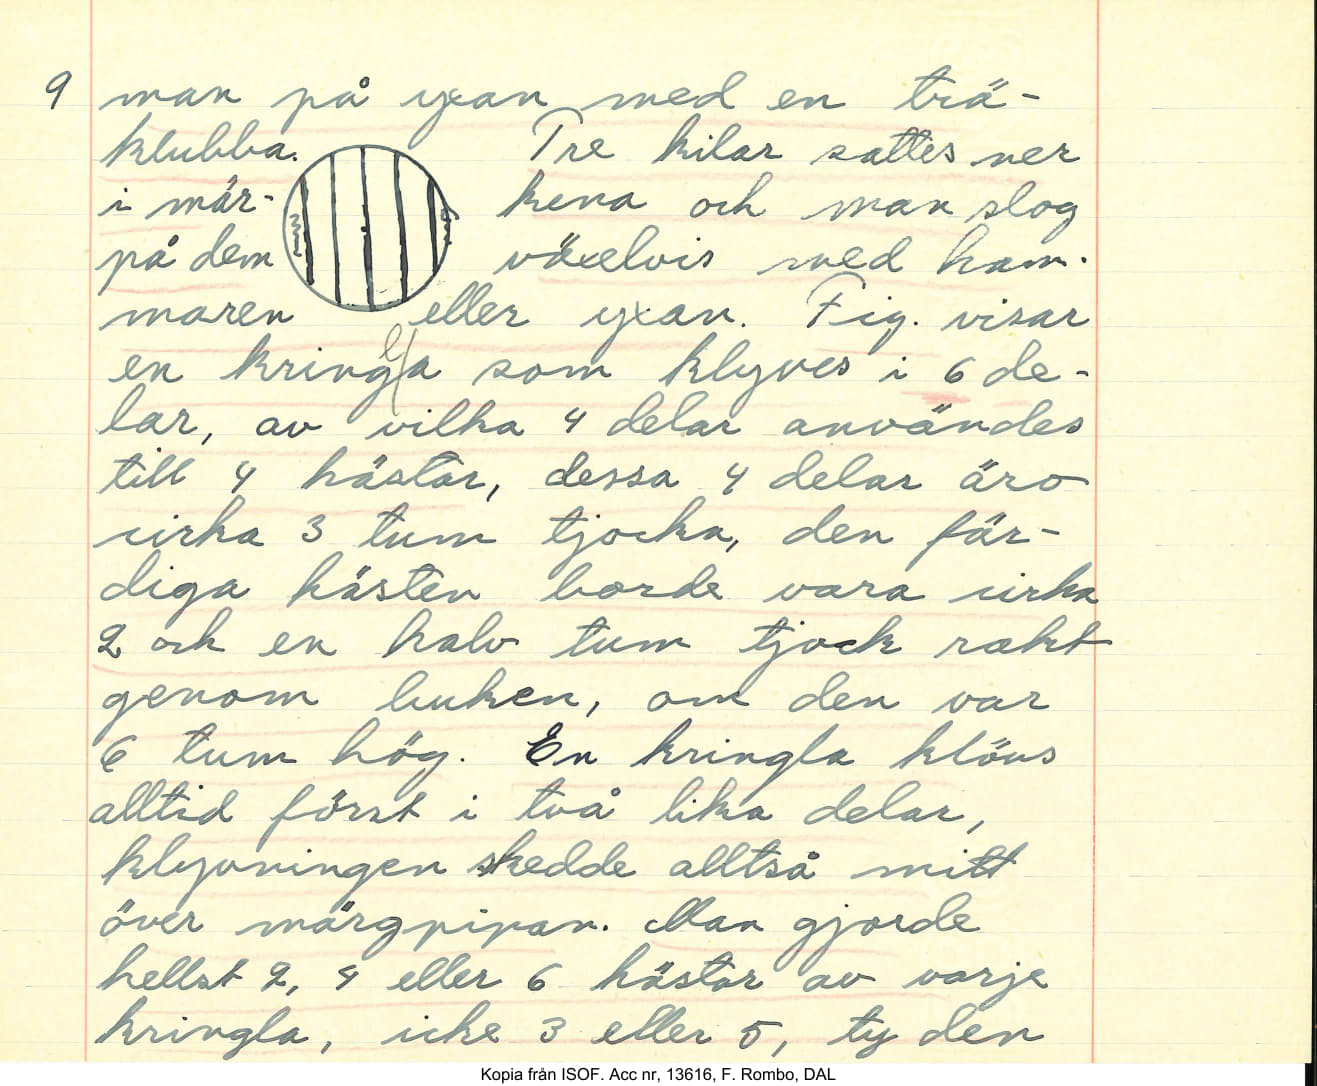 9 man på yxan med en trä-
klubba. Tre kilar sattes ner
i mär- kena och man slog
på dem växelvis med ham-
maren eller yxan. Fig. visar
en kringla som klyves i 6 de-
lar, av vilka 4 delar användes
till 4 hästar, dessa 4 delar äro
cirka 3 tum tjocka, den fär-
diga hästen borde vara cirka
2 och en halv tum tjock rakt
genom buken, om den var
6 tum hög. En kringla klövs
alltid först i två lika delar,
klyvningen skedde alltså mitt
över märgpipan. Man gjorde
hellst 2, 4 eller 6 hästar av varje
kringla, icke 3 eller 5, ty den
Kopia från ISOF. Acc nr, 13616, F. Rombo, DAL